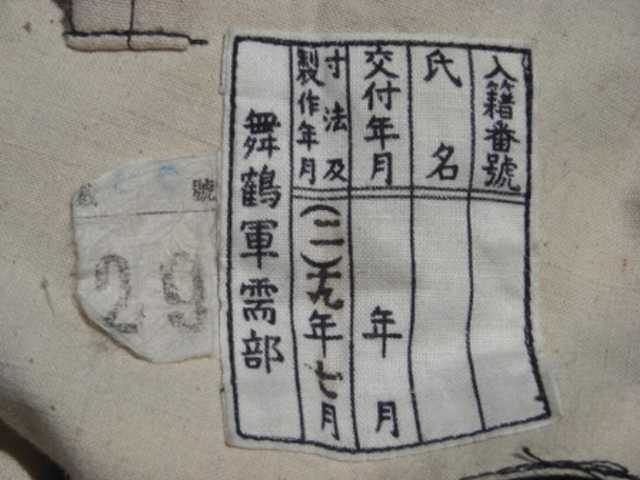 入籍番號
氏名
交付年月 年 月
寸法及
製作年月 (二)十九年七月
舞鶴軍需部
號
29